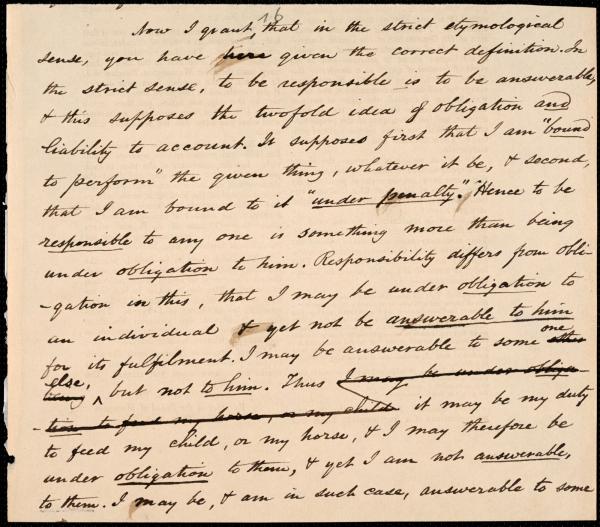 16
Now I grant that in the strict etymological
sense, you have here given the correct definition. In
the strict sense, to be responsible is to be answerable,
& this supposes the twofold idea of obligation and
liability to account. It supposes first that I am "bound
to perform" the given thing, whatever it be, & second,
that I am bound to it "under penalty." Hence to be
responsible to any one is something more than being
under obligation to him. Responsibility differs from obli-
-gation in this, that I may be under obligation to
an individual & yet not be answerable to him
for its fulfilment. I may be answerable to some other one
being else, but not to him. Thus I may be under obliga-
tion to feed my horse, or my child it may be my duty
to feed my child, or my horse, & I may therefore be
under obligation to them, & yet I am not answerable,
to them. I may be, & am in such case, answerable to some